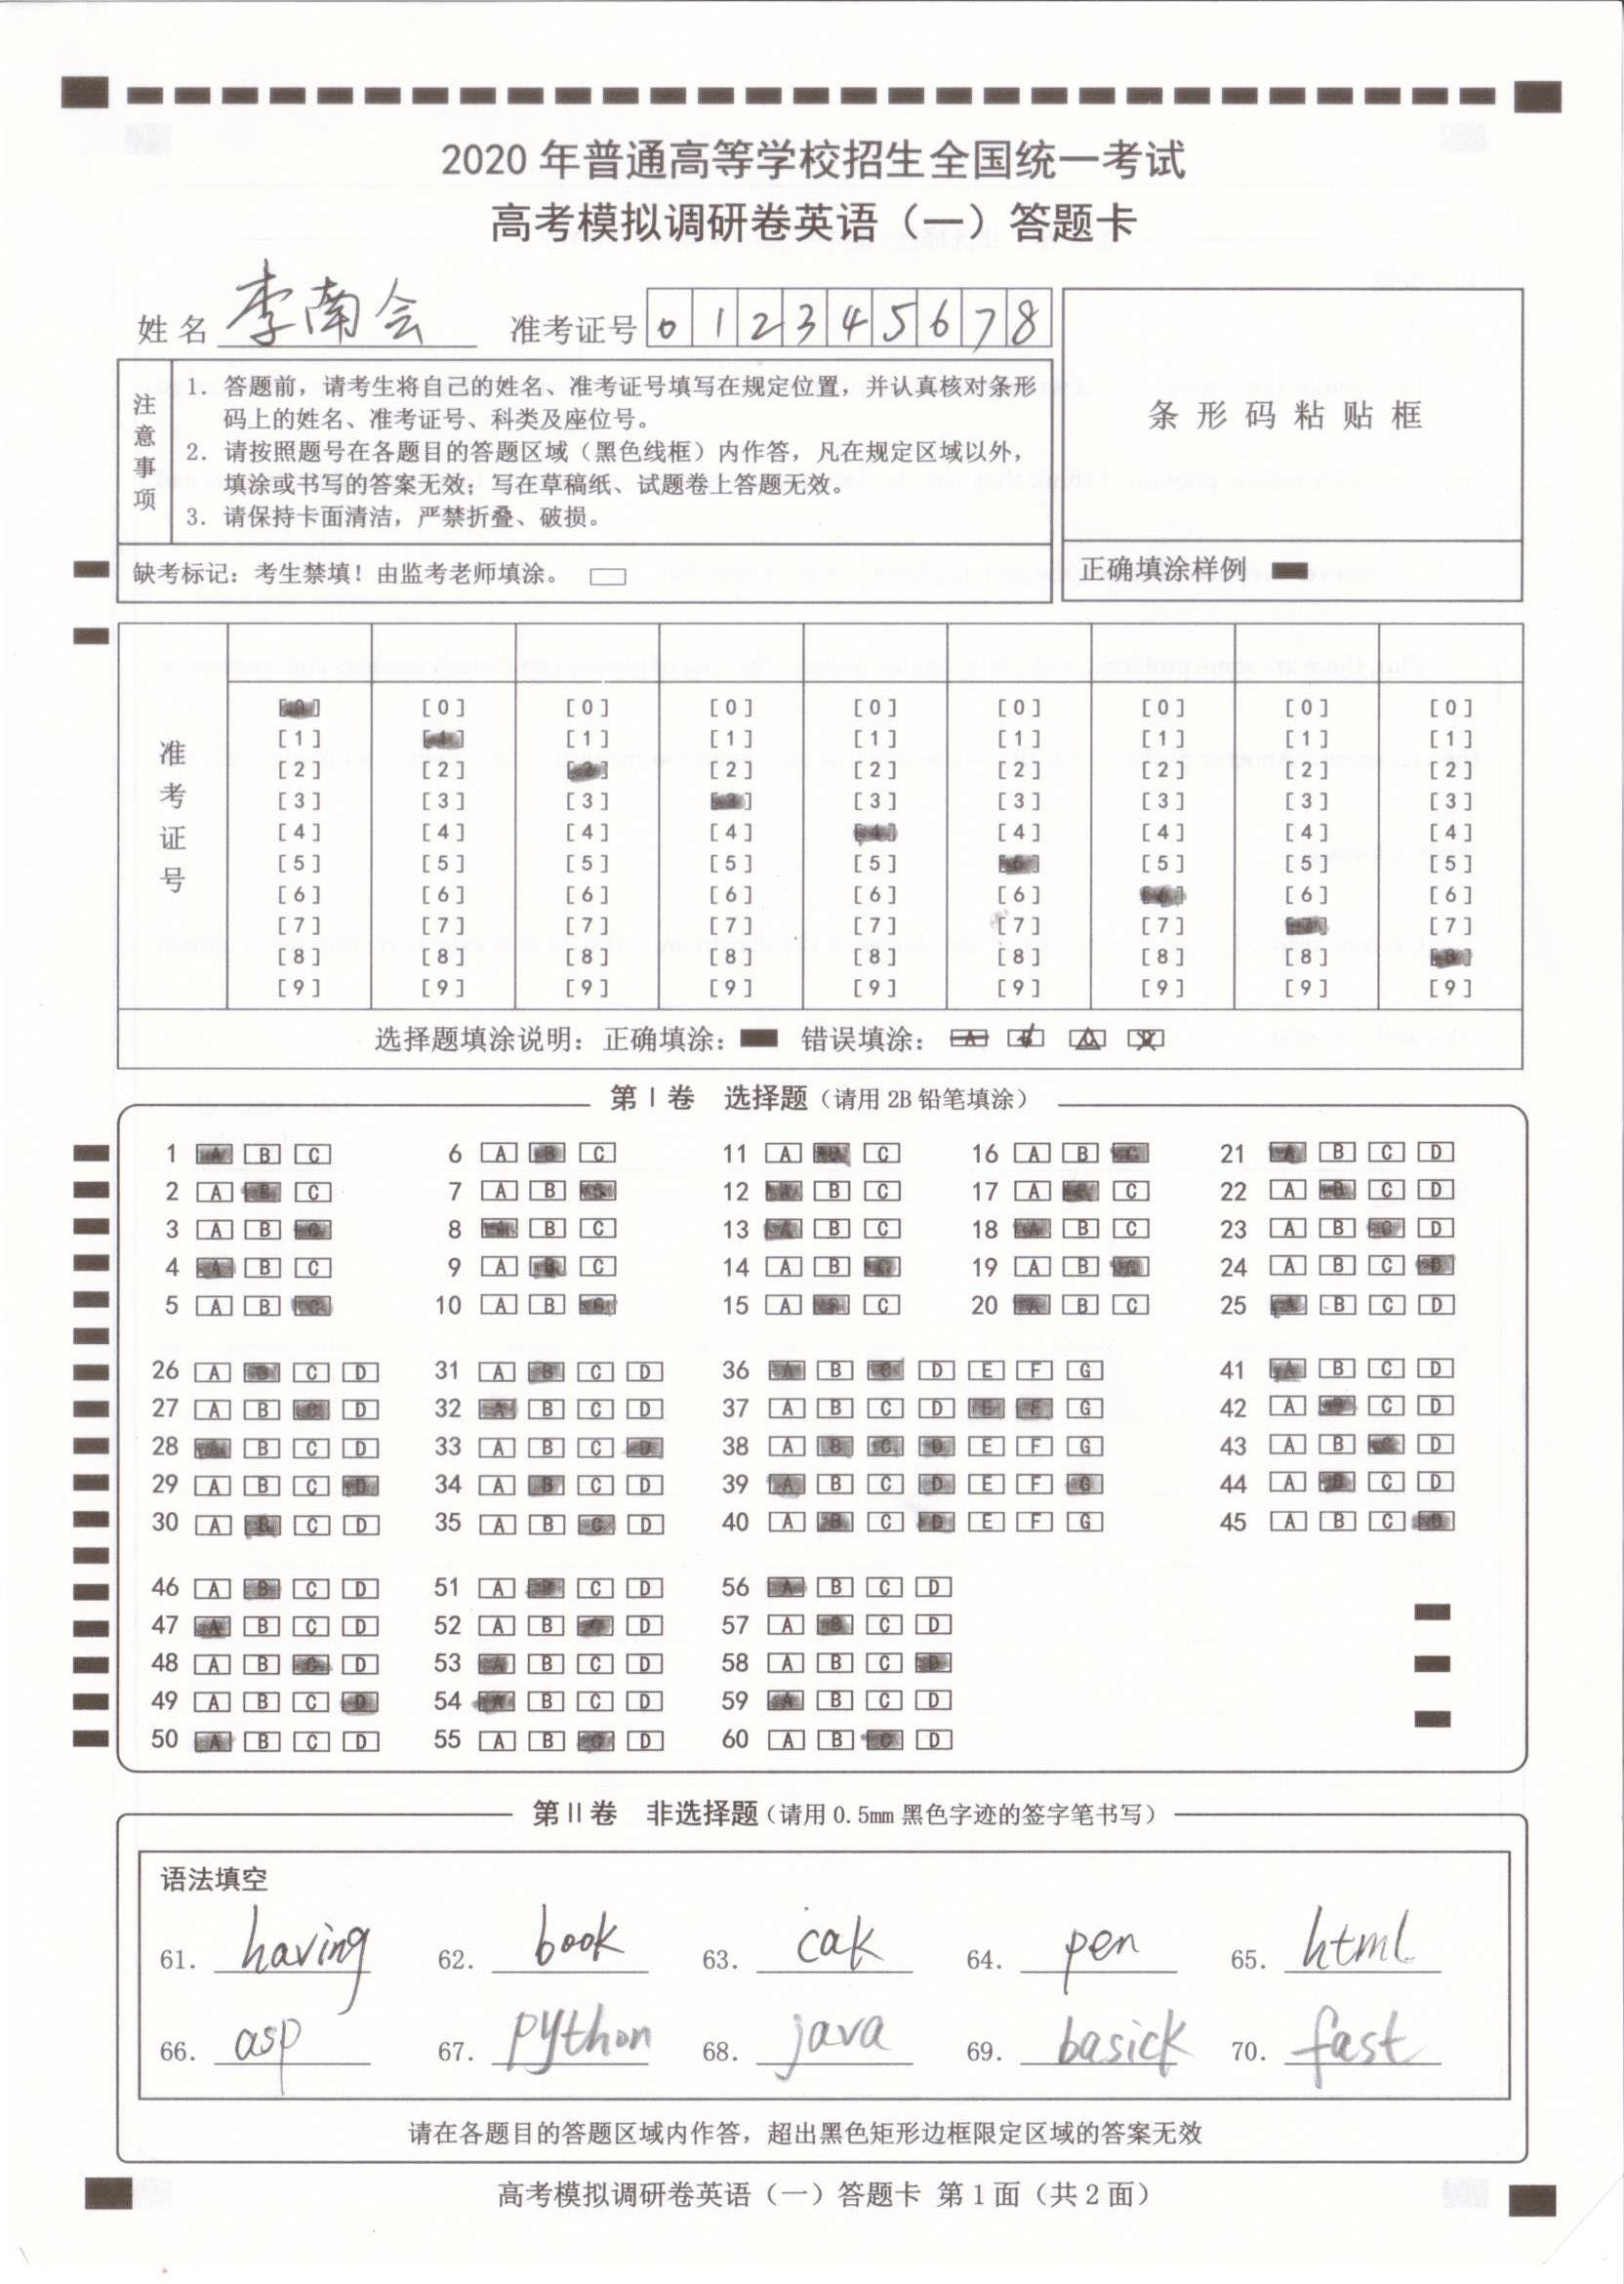 2020 年普通高等学校招生全国统一考试
高考模拟调研卷英语（一）答题卡
姓 名 李南会 准考证号 0 1 2 3 4 5 6 7 8
注意事项
1. 答题前，请考生将自己的姓名、准考证号填写在规定位置，并认真核对条形
码上的姓名、准考证号、科类及座位号。
2. 请按照题号在各题目的答题区域（黑色线框）内作答，凡在规定区域以外，
填涂或书写的答案无效；写在草稿纸、试题卷上答题无效。
3. 请保持卡面清洁，严禁折叠、破损。
条 形 码 粘 贴 框
缺考标记：考生禁填！由监考老师填涂。
正确填涂样例
准考证号
[0] [0] [0] [0] [0] [0] [0] [0] [0]
[1] [1] [1] [1] [1] [1] [1] [1] [1]
[2] [2] [2] [2] [2] [2] [2] [2] [2]
[3] [3] [3] [3] [3] [3] [3] [3] [3]
[4] [4] [4] [4] [4] [4] [4] [4] [4]
[5] [5] [5] [5] [5] [5] [5] [5] [5]
[6] [6] [6] [6] [6] [6] [6] [6] [6]
[7] [7] [7] [7] [7] [7] [7] [7] [7]
[8] [8] [8] [8] [8] [8] [8] [8] [8]
[9] [9] [9] [9] [9] [9] [9] [9] [9]
选择题填涂说明：正确填涂： 错误填涂： A B C D
第 I 卷 选择题（请用 2B 铅笔填涂）
1 A B C 6 A B C 11 A B C 16 A B C 21 A B C D
2 A B C 7 A B C 12 A B C 17 A B C 22 A B C D
3 A B C 8 A B C 13 A B C 18 A B C 23 A B C D
4 A B C 9 A B C 14 A B C 19 A B C 24 A B C D
5 A B C 10 A B C 15 A B C 20 A B C 25 A B C D
26 A B C D 31 A B C D 36 A B C D E F G 41 A B C D
27 A B C D 32 A B C D 37 A B C D E F G 42 A B C D
28 A B C D 33 A B C D 38 A B C D E F G 43 A B C D
29 A B C D 34 A B C D 39 A B C D E F G 44 A B C D
30 A B C D 35 A B C D 40 A B C D E F G 45 A B C D
46 A B C D 51 A B C D 56 A B C D
47 A B C D 52 A B C D 57 A B C D
48 A B C D 53 A B C D 58 A B C D
49 A B C D 54 A B C D 59 A B C D
50 A B C D 55 A B C D 60 A B C D
第 II 卷 非选择题（请用 0.5mm 黑色字迹的签字笔书写）
语法填空
61. having 62. book 63. cak 64. pen 65. html
66. asp 67. python 68. java 69. basick 70. fast
请在各题目的答题区域内作答，超出黑色矩形边框限定区域的答案无效
高考模拟调研卷英语（一）答题卡 第 1 面（共 2 面）